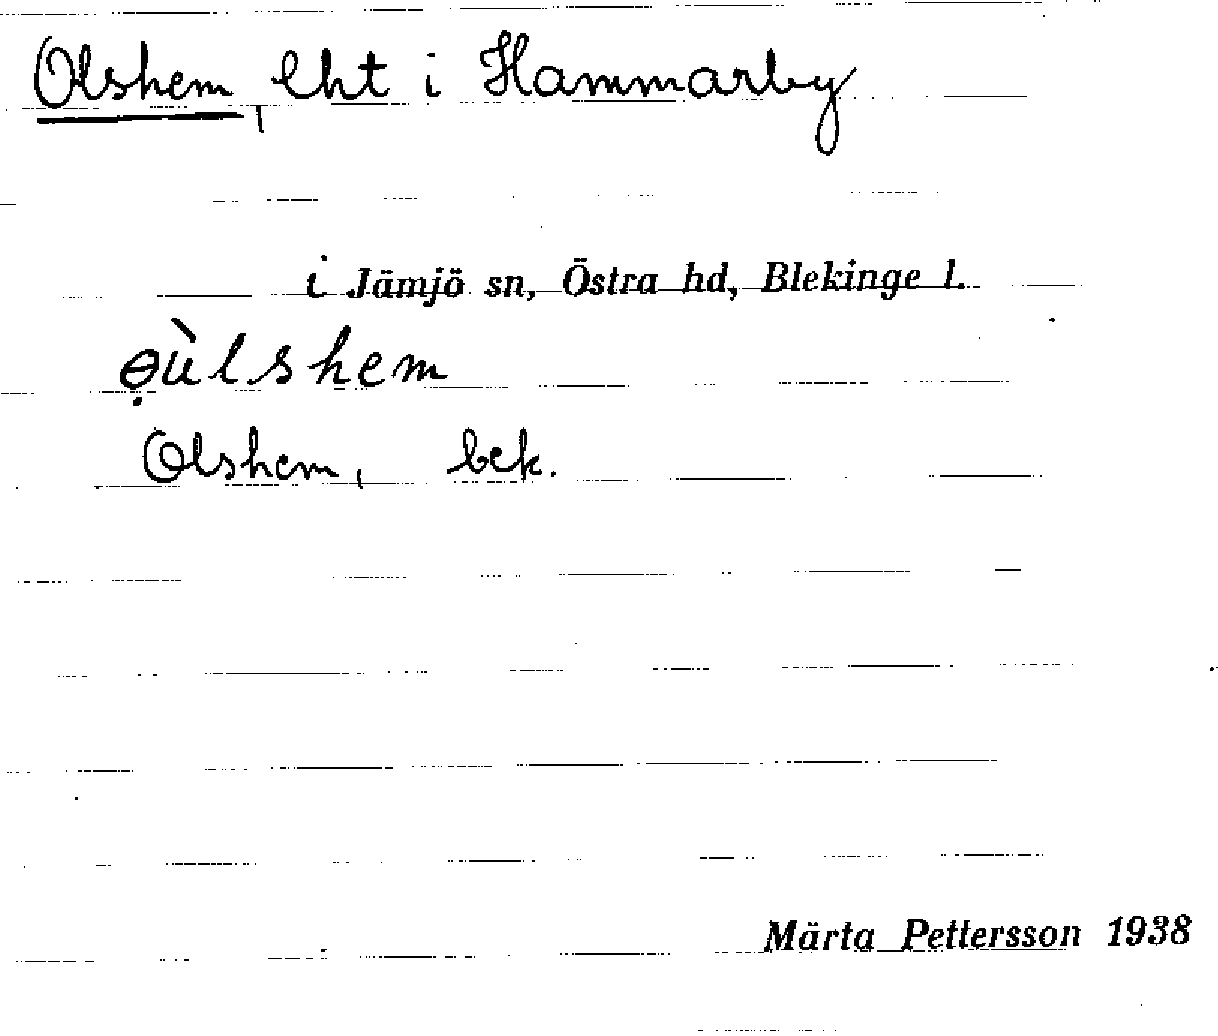 Olshem, lht i Hammarby
i Jämjö sn, Östra hd, Blekinge l.
ɵ̣ùlshem
Olshem, bek.
Märta Pettersson 1938